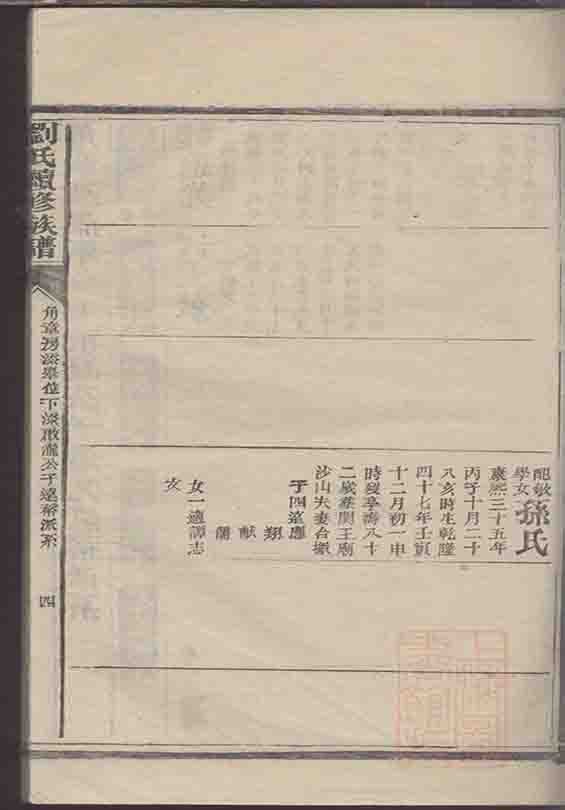 配敏學女孫氏
康熙三十五年
丙子十月二十
八亥時生乾隆
四十七年壬寅
十二月初一申
時歿享壽八十
二歲葬關王廟
沙山夫妻合墩
子四遠應
翔
獻
蘭
女一適譚志
友
劉氏續修族譜
角章房添舉位下添敢龍公子遠幇派系
四